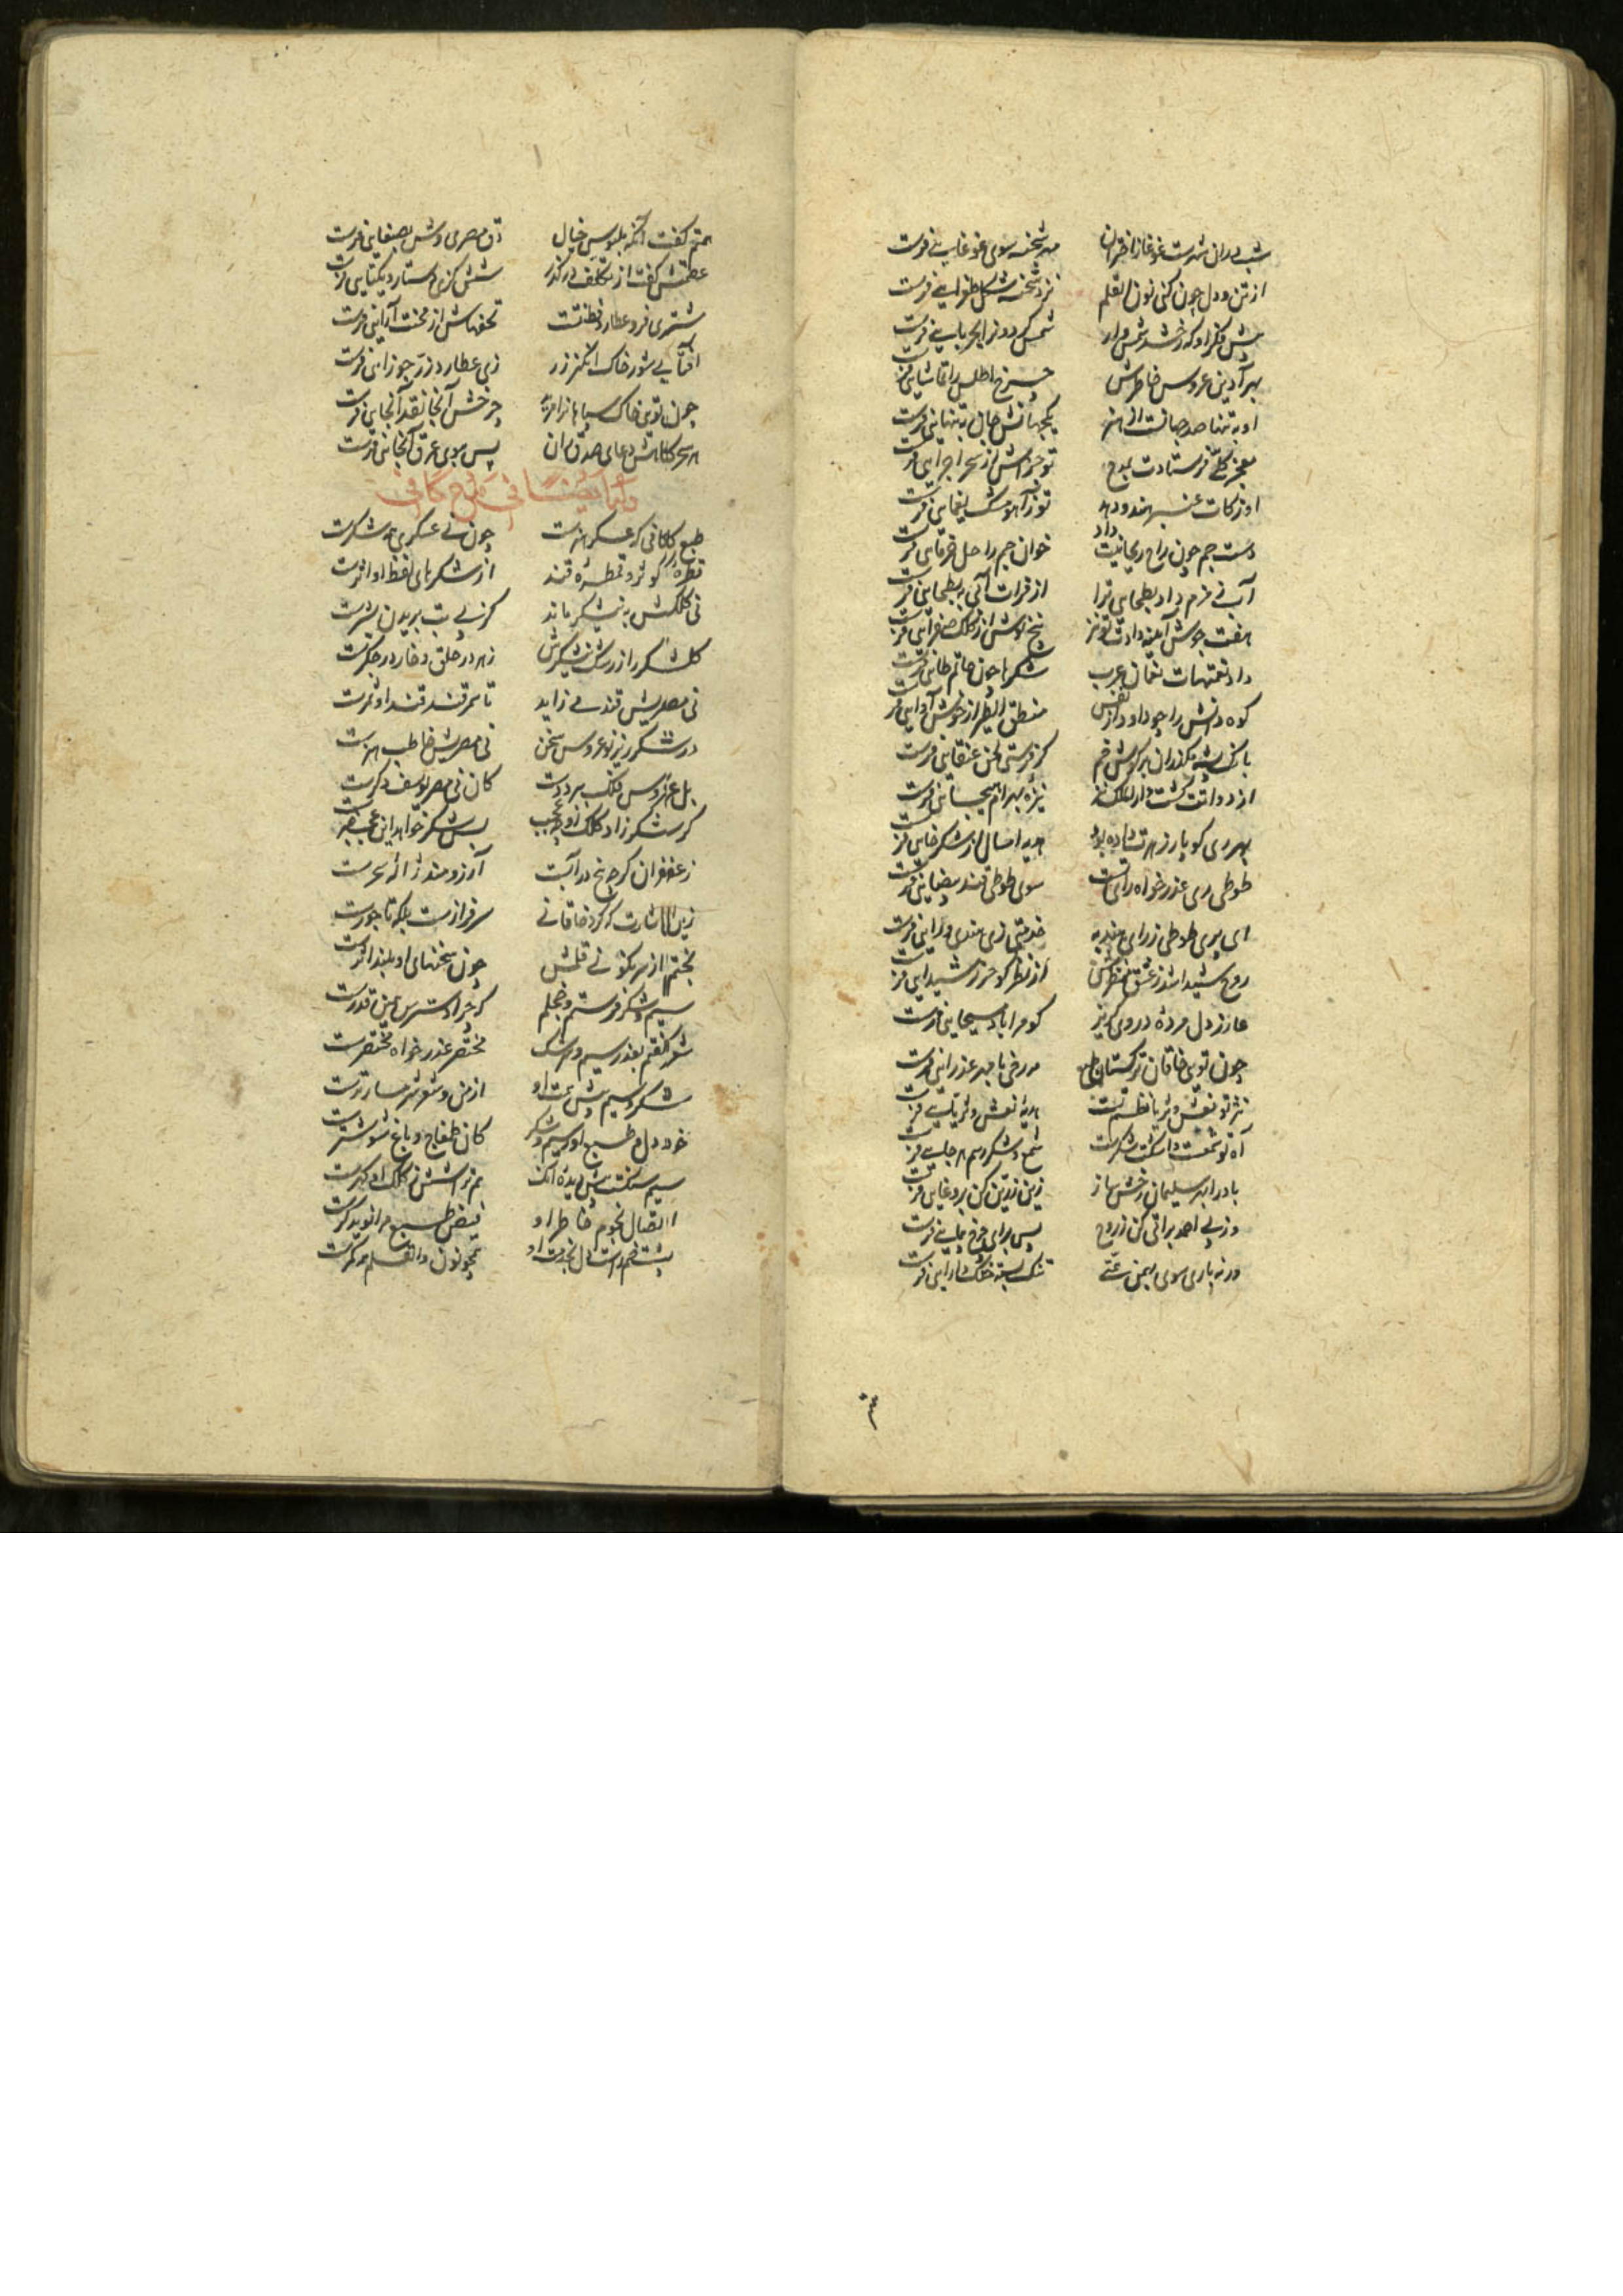 شب دران شهرست غوغا ز اختران مه شحنه سوی غوغایی فرست
از تن و دل چون کنی نون القلم نزد شحنه شکل طغرایی فرست
پیش فکر او که رخشد شمس وار شمس گردون را بحربایی فرست
بهر آذین عروس خاطرش چرخ اطلس را بقاشایی فرست
او به تنها صد جهانست از هنر یکجهانش جان به تنهایی فرست
معجز کلی فرستادت بمدح تو جوابش از سحر اجزایی فرست
او زکات عنبر هندو دهد تو ز آهو مشک یغمایی فرست
دست جم چون راح ریحانیت داد خوان جم را خل خرمایی فرست
آب زمزم داد بطحایی ترا از فرات آبی به بطحایی فرست
هفت جوش آینه دادت تو نیز پنج نوش از کلک صفرایی فرست
داد نعمتهات نعمان عرب شکرها چون حاتم طایی فرست
کوه دانش را چو داود از نفس منطق الطیر از خوش آوایی فرست
بانگ پشه مگذران بر گوش خم گر فرستی لحن عنقایی فرست
نیزه بهرام هیجایی فرست
بهر ری کو پار زهرت داده بود هدیه امسال از شکرخایی فرست
طوطی ری عذرخواه ری سوی طوطی قند بیضایی فرست
ای بری طوطی ز رای هندبه خدمتی زی هندی و رایی فرست
روح شیدا شد ز عشق منظرش از نظر گو حرز شیدایی فرست
عازر دل مرده در وی گریز گو مرا باد مسیحایی فرست
چون تویی خاقان ترکستان طبع مدحی با مهد عذرایی فرست
نثر تو نعش و ثریا نظم تست هدیه نعش و ثریایی فرست
آه تو شمعست و اشکت شکرست شمع و شکر رسم هر جایی فرست
باد را بهر سلیمان رخش ساز زین زرین کن بر دغایی فرست
وز پی احمد براقی کن ز روح پس برای چرخ پیمایی فرست
ورنه باری سوی بهمن همتی تنگ بسته خنگ دارایی فرست
همتم گفت آنکه ملبوس خیال دق مصری وشی صنعایی فرست
عظمتش گفت از تکلف درگذر شش گزی دستار و یکتایی فرست
مشتری فر و عطارد فطنتت تحفه‌هاش از مدحت آرایی فرست
آفتابی شو ز خاک انگیز زر زی عطارد زر جوزایی فرست
چون تویی خاک سپاهان را مرید چرخش آنجا نقد آنجایی فرست
هر سحرگاهش دعای صدق ران پس بسوی عرش آنجایی فرست
طبع کافی که عسکر هنرست چون نی عسکری همه شکرست
قطره کلک او دو قطره قند از شکرهای لفظ او اثرست
نی کلکش به نیشکر ماند کز پی تب بریدن بشرست
گلشکر را ز رشک نیشکرش زهر در حلق و خار در جگرست
نی مصریش قند می زاید تا سمرقند قند او سمرست
در شکرریز نوعروس سخن نی مصریش خاطب هنرست
بل عروس فلک ببرد دست کان نی مصر یوسف دگرست
گر شکر زاد کلک او چه عجب بس شکر خواهد این عجب خبرست
زعفران گرچه بیخ در آبست آرزومند ژاله سحرست
زین اشارت که کرد خاقانی سرفرازست بلکه تاجورست
پختم از سر نکونی قلمش چون سخنهای او بلند اثرست
سیم و شکر فرستم و خجلم که چرا دسترس همین قدرست
شعر گفتم بقدر سیم و شکر مختصر عذرخواه مختصرست
شکر و سیم پیش همت او از من و شعر شرمسارترست
خود دل و طبع او ز سیم و شکر کان طمغاج و باغ شوشترست
سیم سنگست پیش دیده آنک تراشش ز کلک او گهرست
اتصال نجوم خاطر او فیض طبع مرا نویدگرست
پشت خم راست دل بخدمت او همچو نون والقلم همه کمرست